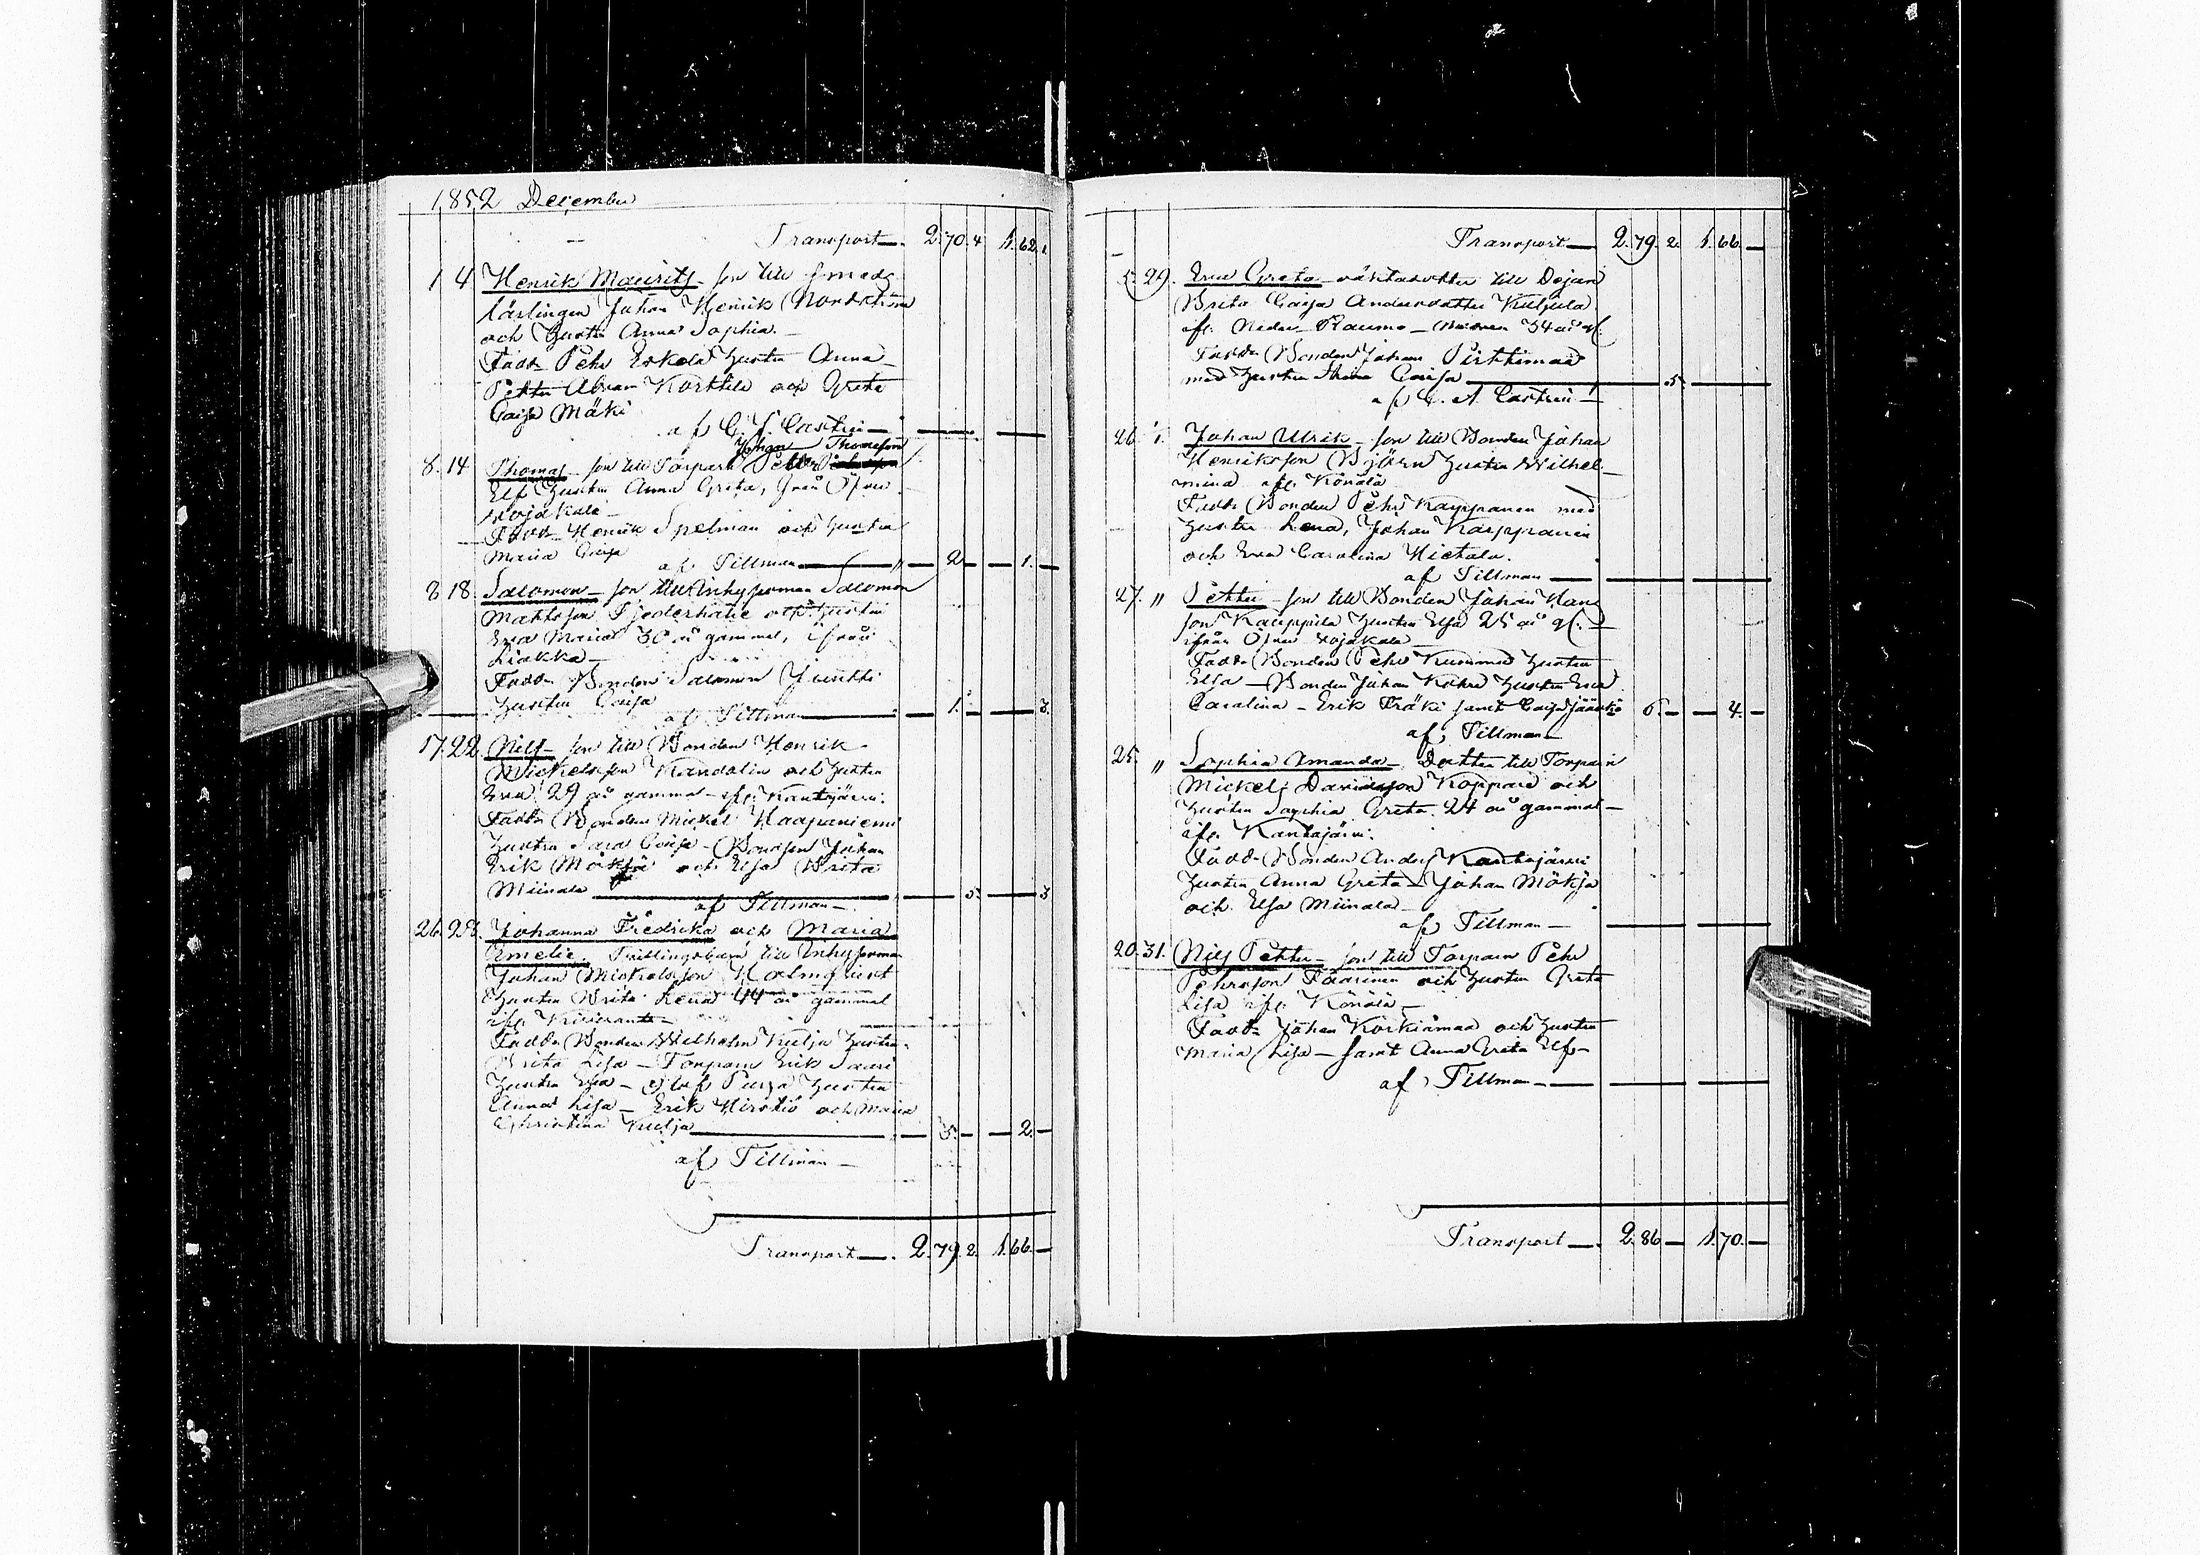 1852 December
Transport 2. 70. 4 1. 62. 1.
1 4 Henrik Maurits son till smeds
lärlingen Johan Henrik Nordström
och Hustru Anna Sophia.
Fadd. Pehr Erkela Hustru Anna
Petter Abram Korttila och Greta
Caisa Mäki
af C. J. Castrén
Johan Thomasson
8. 14 Thomas son till Torparn Petter
Elf Hustru Anna Greta, från Öfver
Wojakala
Fadd. Henrik Spelman och Hustru
Maria Caisa
af Tillman 2 1.
8 18. Salomon son till Inhysesman Salomon
Mattsson Fjederhane och Hustru
Eva Maria 30 år gammal, ifrån
Liakka
Fadd. Bonden Salomon
Hustru Caisa
af Tillman 1. 3.
17. 22. Nils son till Bonden Henrik
Mickelsson Kandelin och Hustru
Eva 29 år gammal ifr. Kantojärvi.
Fadd. Bonden Mickel Haapaniemi
Hustru Sara Caisa Bondson Johan
Erik Mökjä och Elsa Brita
Miinala 3 3
af Tillman
26. 28. Johanna Fredrika och Maria
Amelie. Tvillingsbarn till Inhysesman
Johan Mickelsson Holmqvist
Hustru Brita Lena 44 år gammal
ifr. Kiviranta
Fadd. Bonden Wilhelm Kulja Hustru
Brita Lisa Torparn Erik Saari
Hustru Elsa Olof Hustru
Anna Lisa Erik och Maria
Christina Kulja 3. 2.
af Tillman
Transport 2. 79. 2. 1. 66.
Transport 2. 79. 2. 1. 66.
5. 29. Eva Greta oäktadotter till Dejan
Brita Caisa Andersdotter Kuljula
ifr. Neder Raumo Modren 34 år gl.
Fadd. Bonden Johan Pirttimaa
med Hustru Caisa 5
af C. A. Castrén
26 1. Johan Ulrik son till Bonden Johan
Henriksson Björn Hustru Wilhel
mina ifr. Könölä
Fadd. Bonden Pehr Karppanen med
Hustru Lena, Johan Karppanen
och Eva Carolina Hietala.
af Tillman
27. " Petter son till Bonden Johan Hans
son Kauppila Hustru Elsa 25 år gl.
ifrån Öfver Wojakala
Fadd. Bonden Pehr Hustru
Elsa Bonden Johan Hustru Eva
Carolina Erik Träki samt Caisa 6. 4.
af Tillman
25. " Sophia Amanda Dotter till Torparn
Mickel Davidsson Koppare och
Hustru Sophia Greta 24 år gammal
ifr. Kantojärvi.
Fadd. Bonden Anders Kantojärvi
Hustru Anna Greta Johan Mökjä
och Elsa Miinala
af Tillman
20. 31. Nils Petter son till Torparn Pehr
Pehrsson Faarinen och Hustru Greta
Lisa ifr. Könölä
Fadd. Johan Körkiämaa och Hustru
Maria Lisa samt Anna Greta Elf
af Tillman
Transport 2. 86 1. 70.